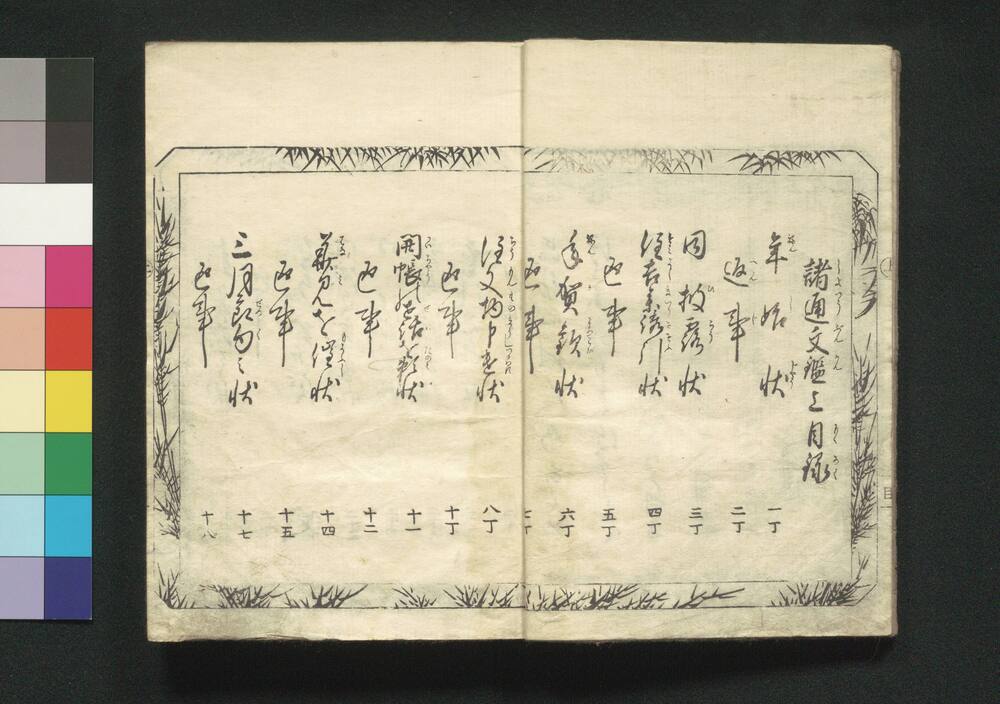 諸通文鑑上目録
年始状 一丁
返事 二丁
同披露状 三丁
四丁
返事 五丁
年賀歓状 六丁
返事 七丁
注文物申遣状 八丁
返事 十丁
開帳世話頼状 十一
返事 十二
花見を催状 十四
返事 十五
三月節句之状 十七
返事 十八